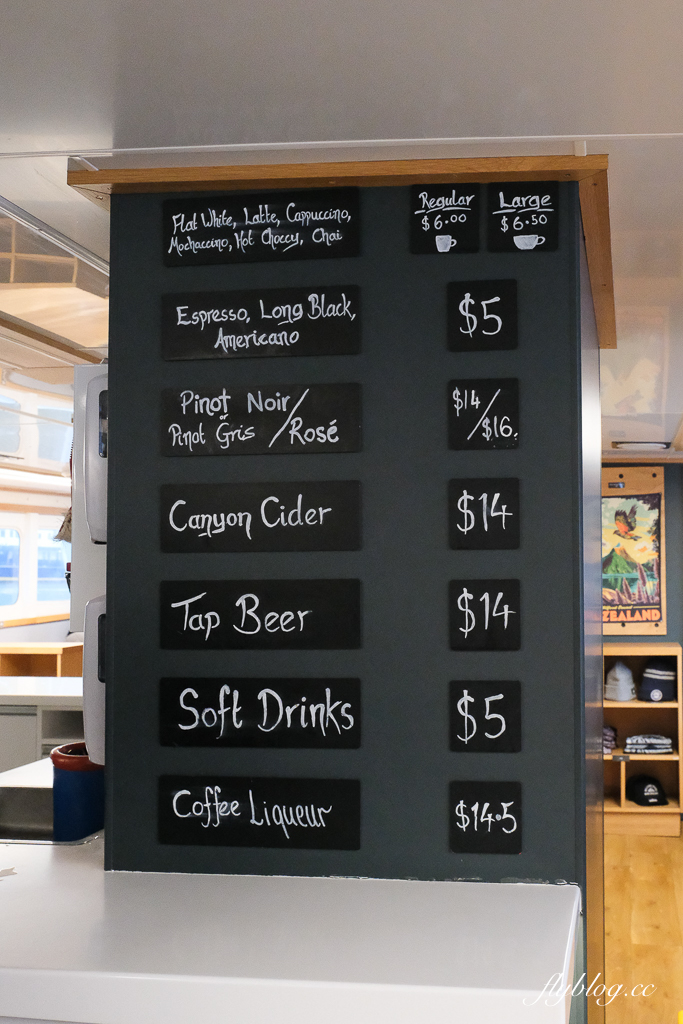 Flat White, Latte, Cappuccino,
Mochaccino, Hot Choccy, Chai
Regular
$6.00
Large
$6.50
Espresso, Long Black,
Americano
$5
Pinot Noir/
or
Pinot Gris /Rosé
$14
/$16.
Canyon Cider
$14
Tap Beer
$14
Soft Drinks
$5
Coffee Liqueur
$14.5
ZEALAND
flyblog.cc